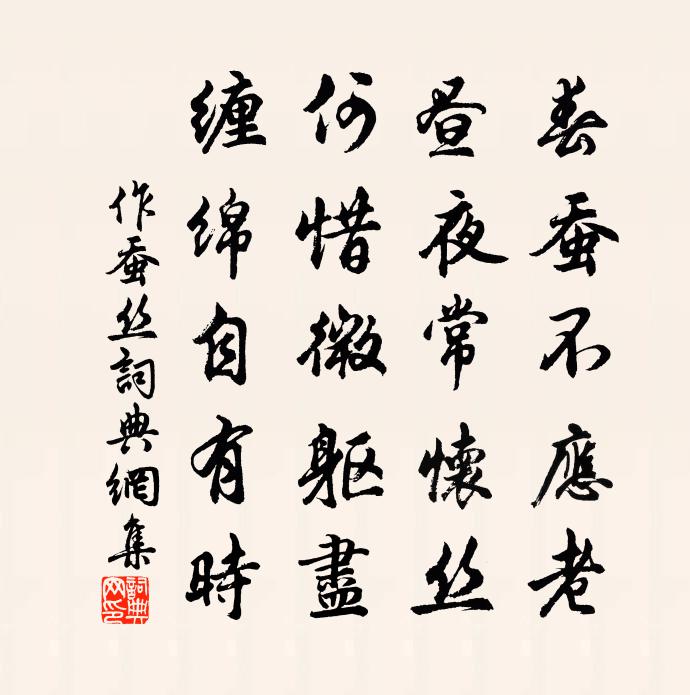 春蚕不應老
昼夜常懷丝
何惜微軀盡
缠绵自有時
作蚕丝詞典網集
詞典网印